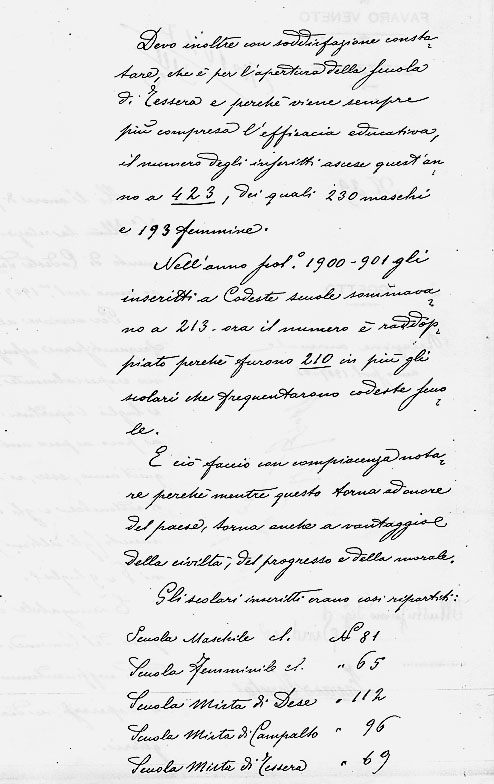 Devo inoltre con soddisfazione consta-
tare, che è per l'apertura della scuola
di Tessera e perché viene sempre
più compresa l'efficacia educativa,
il numero degli inscritti ascese quest'an-
no a 423, dei quali 230 maschi
e 193 femmine.
Nell'anno scol.º 1900-901 gli
inscritti a Codeste scuole sommava-
no a 213 - ora il numero è raddop-
piato perché furono 210 in più gli
scolari che frequentarono codeste scuo-
le.
E ciò faccio con compiacenza nota-
re perché mentre questo torna ad onore
del paese, torna anche a vantaggio
della civiltà, del progresso e della morale.
Gli scolari inscritti erano così ripartiti:
Scuola Maschile cl. Nº 81
Scuola Femminile cl. " 65
Scuola Mista di Dese " 112
Scuola Mista di Campalto " 96
Scuola Mista di Tessera " 69